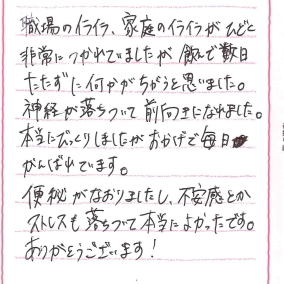 職場のイライラ、家庭のイライラがひどく
非常につかれていましたが 飲んで数日
たたずに何かがちがうと思いました。
神経が落ちついて前向きになれました。
本当にびっくりしましたがおかげで毎日
がんばれています。
便秘がなおりましたし、不安感とか
ストレスも落ちついて本当によかったです。
ありがとうございます!